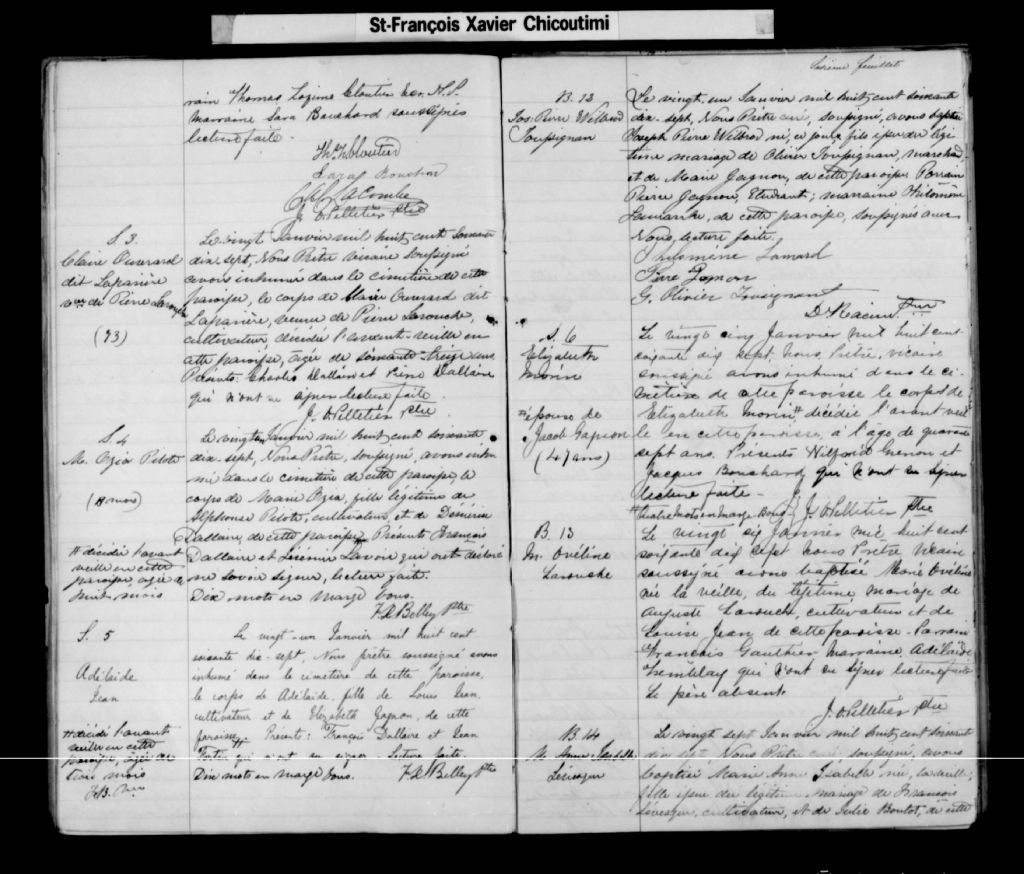 St-François Xavier Chicoutimi
rain Thomas Cloutier Ecr. N.P.
Marraine Sara Bouchard soussignés
lecture faite.
Ths Z Cloutier
Sara Bouchard
Lacombe
J. O Pelletier Ptre
S. 3.
Claire Ouvrard
dit Laparière
vve de Pierre Larouche
(73)
Le vingt Janvier mil huit cent soixante
dix-sept, Nous Prêtre vicaire soussigné
avons inhumé dans le cimetière de cette
paroisse, le corps de Claire Ouvrard dit
Laparière, veuve de Pierre Larouche,
cultivateur, décédée l'avant-veille en
cette paroisse, agée de soixante-treize ans
Présents Charles Dallaire et Pierre Dallaire
qui n'ont su signer lecture faite.
J. O Pelletier Ptre
S. 4
M. Ozia Pilote
(8 mois)
Le vingt Janvier mil huit cent soixante
dix-sept, Nous Prêtre, soussigné, avons inhu
mé dans le cimetière de cette paroisse, le
corps de Marie Ozia, fille légitime de
Alphonse Pilote, cultivateur, et de Démérise
Dallaire de cette paroisse. Présents François
Dallaire et Lavoie qui ont déclaré
ne savoir signer, lecture faite.
Dix mots en marge bons.
F. X. Belley Ptre
# décédée l'avant
veille en cette
paroisse, agée de
huit mois
S. 5
Adélaïde
Jean
Le vingt-un Janvier mil huit cent
soixante dix-sept, Nous prêtre soussigné avons
inhumé dans le cimetière de cette paroisse,
le corps de Adélaïde, fille de Louis Jean,
cultivateur et de Elizabeth Gagnon, de cette
paroisse. # Présents: François Dallaire et Jean
Fortin qui n'ont su signer. Lecture faite.
Dix mots en marge bons. F. X. Belley Ptre
# décédée l'avant
veille en cette
paroisse, agée de
trois mois
F.B. Ptre
feuillet
B. 12
Jos. Pierre Wilbrod
Toussignan
Le vingt, un Janvier mil huit cent soixante
dix-sept, Nous Prêtre curé, soussigné, avons baptisé
Joseph Pierre Wilbrod né, ce jour, fils issu du légi
time mariage de Olivier Toussignan, marchand
et de Marie Gagnon, de cette paroisse Parrain
Pierre Gagnon, Etudiant; marraine Philomène
Lamarre, de cette paroisse, soussignés avec
Nous, lecture faite.
Philomène Lamard
Pierre Gagnon
G. Olivier Tousignant
D. Racine Ptre
S. 6
Elizabeth
Morin
# épouse de
Jacob Gagnon
(47 ans)
Le vingt cinq Janvier mil huit cent
soixante dix sept, nous, Prêtre, vicaire
soussigné avons inhumé dans le ci-
metière de cette paroisse le corps de
Elizabeth Morin # décédée l'avant veil
le en cette paroisse, à l'âge de quarante
sept ans. Présents Wilfrid Grenon et
Jacques Bouchard, qui n'ont su signer
lecture faite.
# Quatre mots en marge bons J. O Pelletier Ptre
B. 13
M. Ovéline
Larouche
Le vingt six Janvier mil huit cent
soixante dix sept nous Prêtre Vicaire
soussigné avons baptisé Marie Ovéline
née la veille, du légitime mariage de
Auguste Larouche, cultivateur et de
Louise Jean de cette paroisse. Parrain
François Gauthier Marraine Adélaïde
Tremblay qui n'ont su signer lecture faite
Le père absent.
J. O Pelletier Ptre
B. 14
M. Anne Isabelle
Lévesque
Le vingt sept Janvier mil huit cent soixante
dix-sept Nous Prêtre curé, soussigné, avons
baptisé Marie Anne Isabelle née, la veille,
fille issue du légitime mariage de François
Lévesque, cultivateur, et de Julie Boulet, de cette